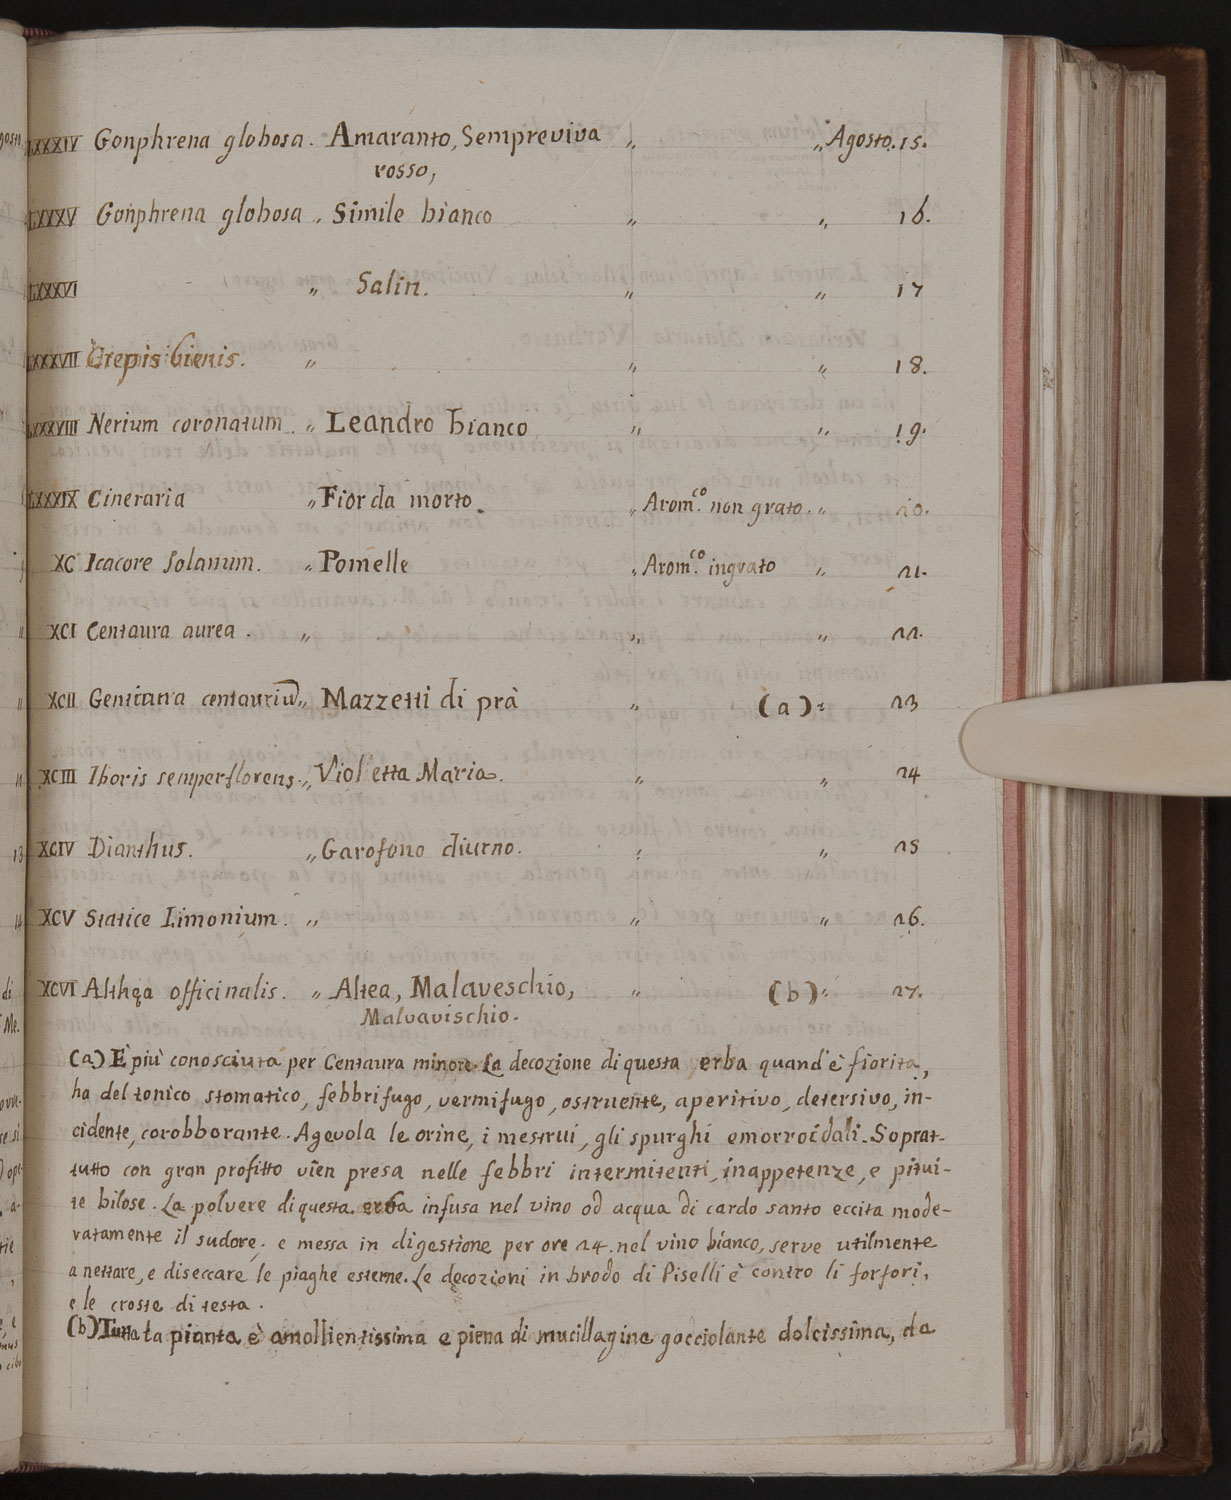 LXXXIV Gonphrena globosa. Amaranto, Sempreviva „ „ Agosto. 15.
rosso,
LXXXV Gonphrena globosa „ Simile bianco „ „ 16.
LXXXVI „ Salin. „ „ 17
LXXXVII Crepis bienis. „ „ „ 18.
LXXXVIII Nerium coronatum „ Leandro bianco „ „ 19.
LXXXIX Cineraria „ Fior da morto. „ Arom.co non grato. „ 20.
XC Icacore Solanum. „ Pomelle „ Arom.co ingrato „ 21.
XCI Centaura aurea. „ „ „ 22.
XCII Gentiana centauriū „ Mazzetti di prà „ (a) „ 23
XCIII Iboris semperflorens. „ Violetta Maria. „ „ 24
XCIV Dianthus. „ Garofono diurno. „ „ 25
XCV Statice Limonium. „ „ „ 26.
XCVI Althea officinalis. „ Altea, Malaveschio, „ (b) „ 27.
Malvavischio.
(a) È più conosciuta per Centaura minore. La decozione di questa erba quand'è fiorita,
ha del tonico stomatico, febbrifugo, vermifugo, ostruente, aperitivo, detersivo, in-
cidente, corobborante. Agevola le orine, i mestrui, gli spurghi emorroidali. Soprat-
tutto con gran profitto vien presa nelle febbri intermitenti, inappetenze, e pitui-
te bilose. La polvere di questa erba infusa nel vino od acqua di cardo santo eccita mode-
ratamente il sudore. e messa in digestione per ore 24. nel vino bianco, serve utilmente
a nettare, e diseccare le piaghe esterne. Le decozioni in brodo di Piselli è contro li forfori,
e le croste di testa.
(b) Tutta la pianta è amollientissima e piena di mucillagine gocciolante dolcissima, da